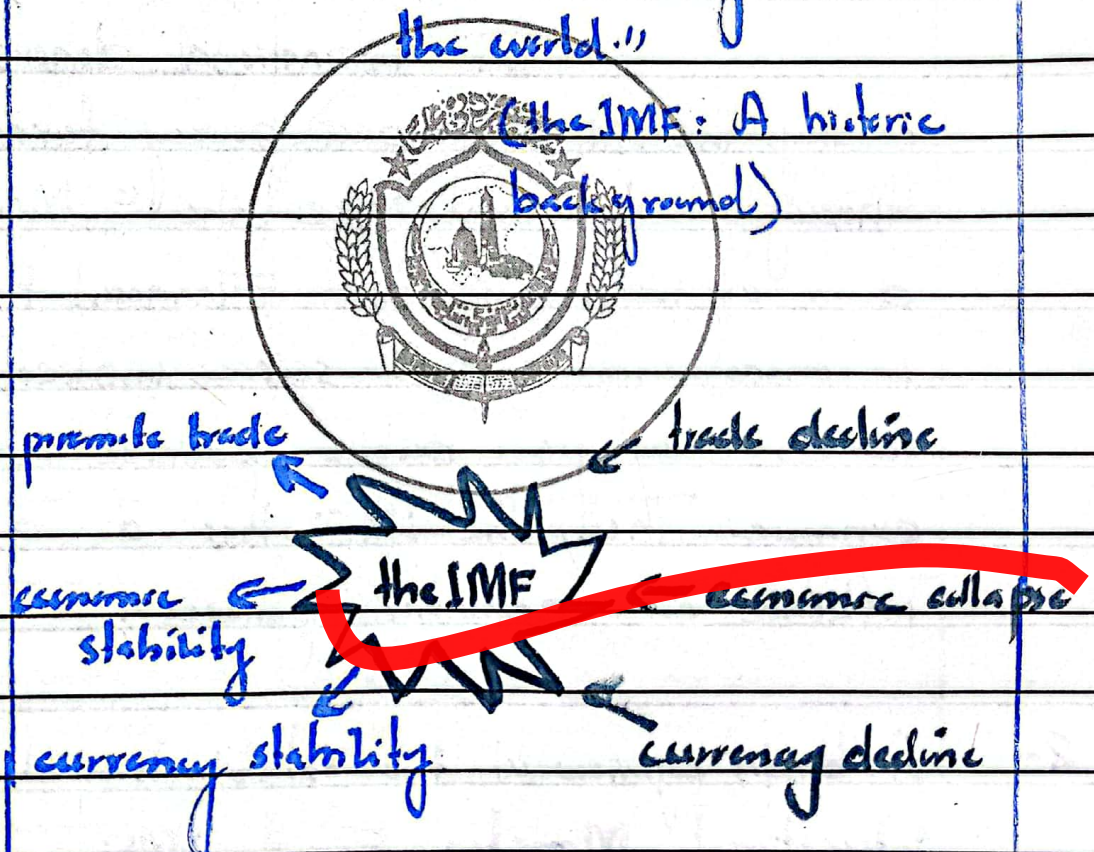 the world."
(the IMF: A historic
background)
promote trade
trade decline
the IMF
economic
stability
economic collapse
currency stability
currency decline